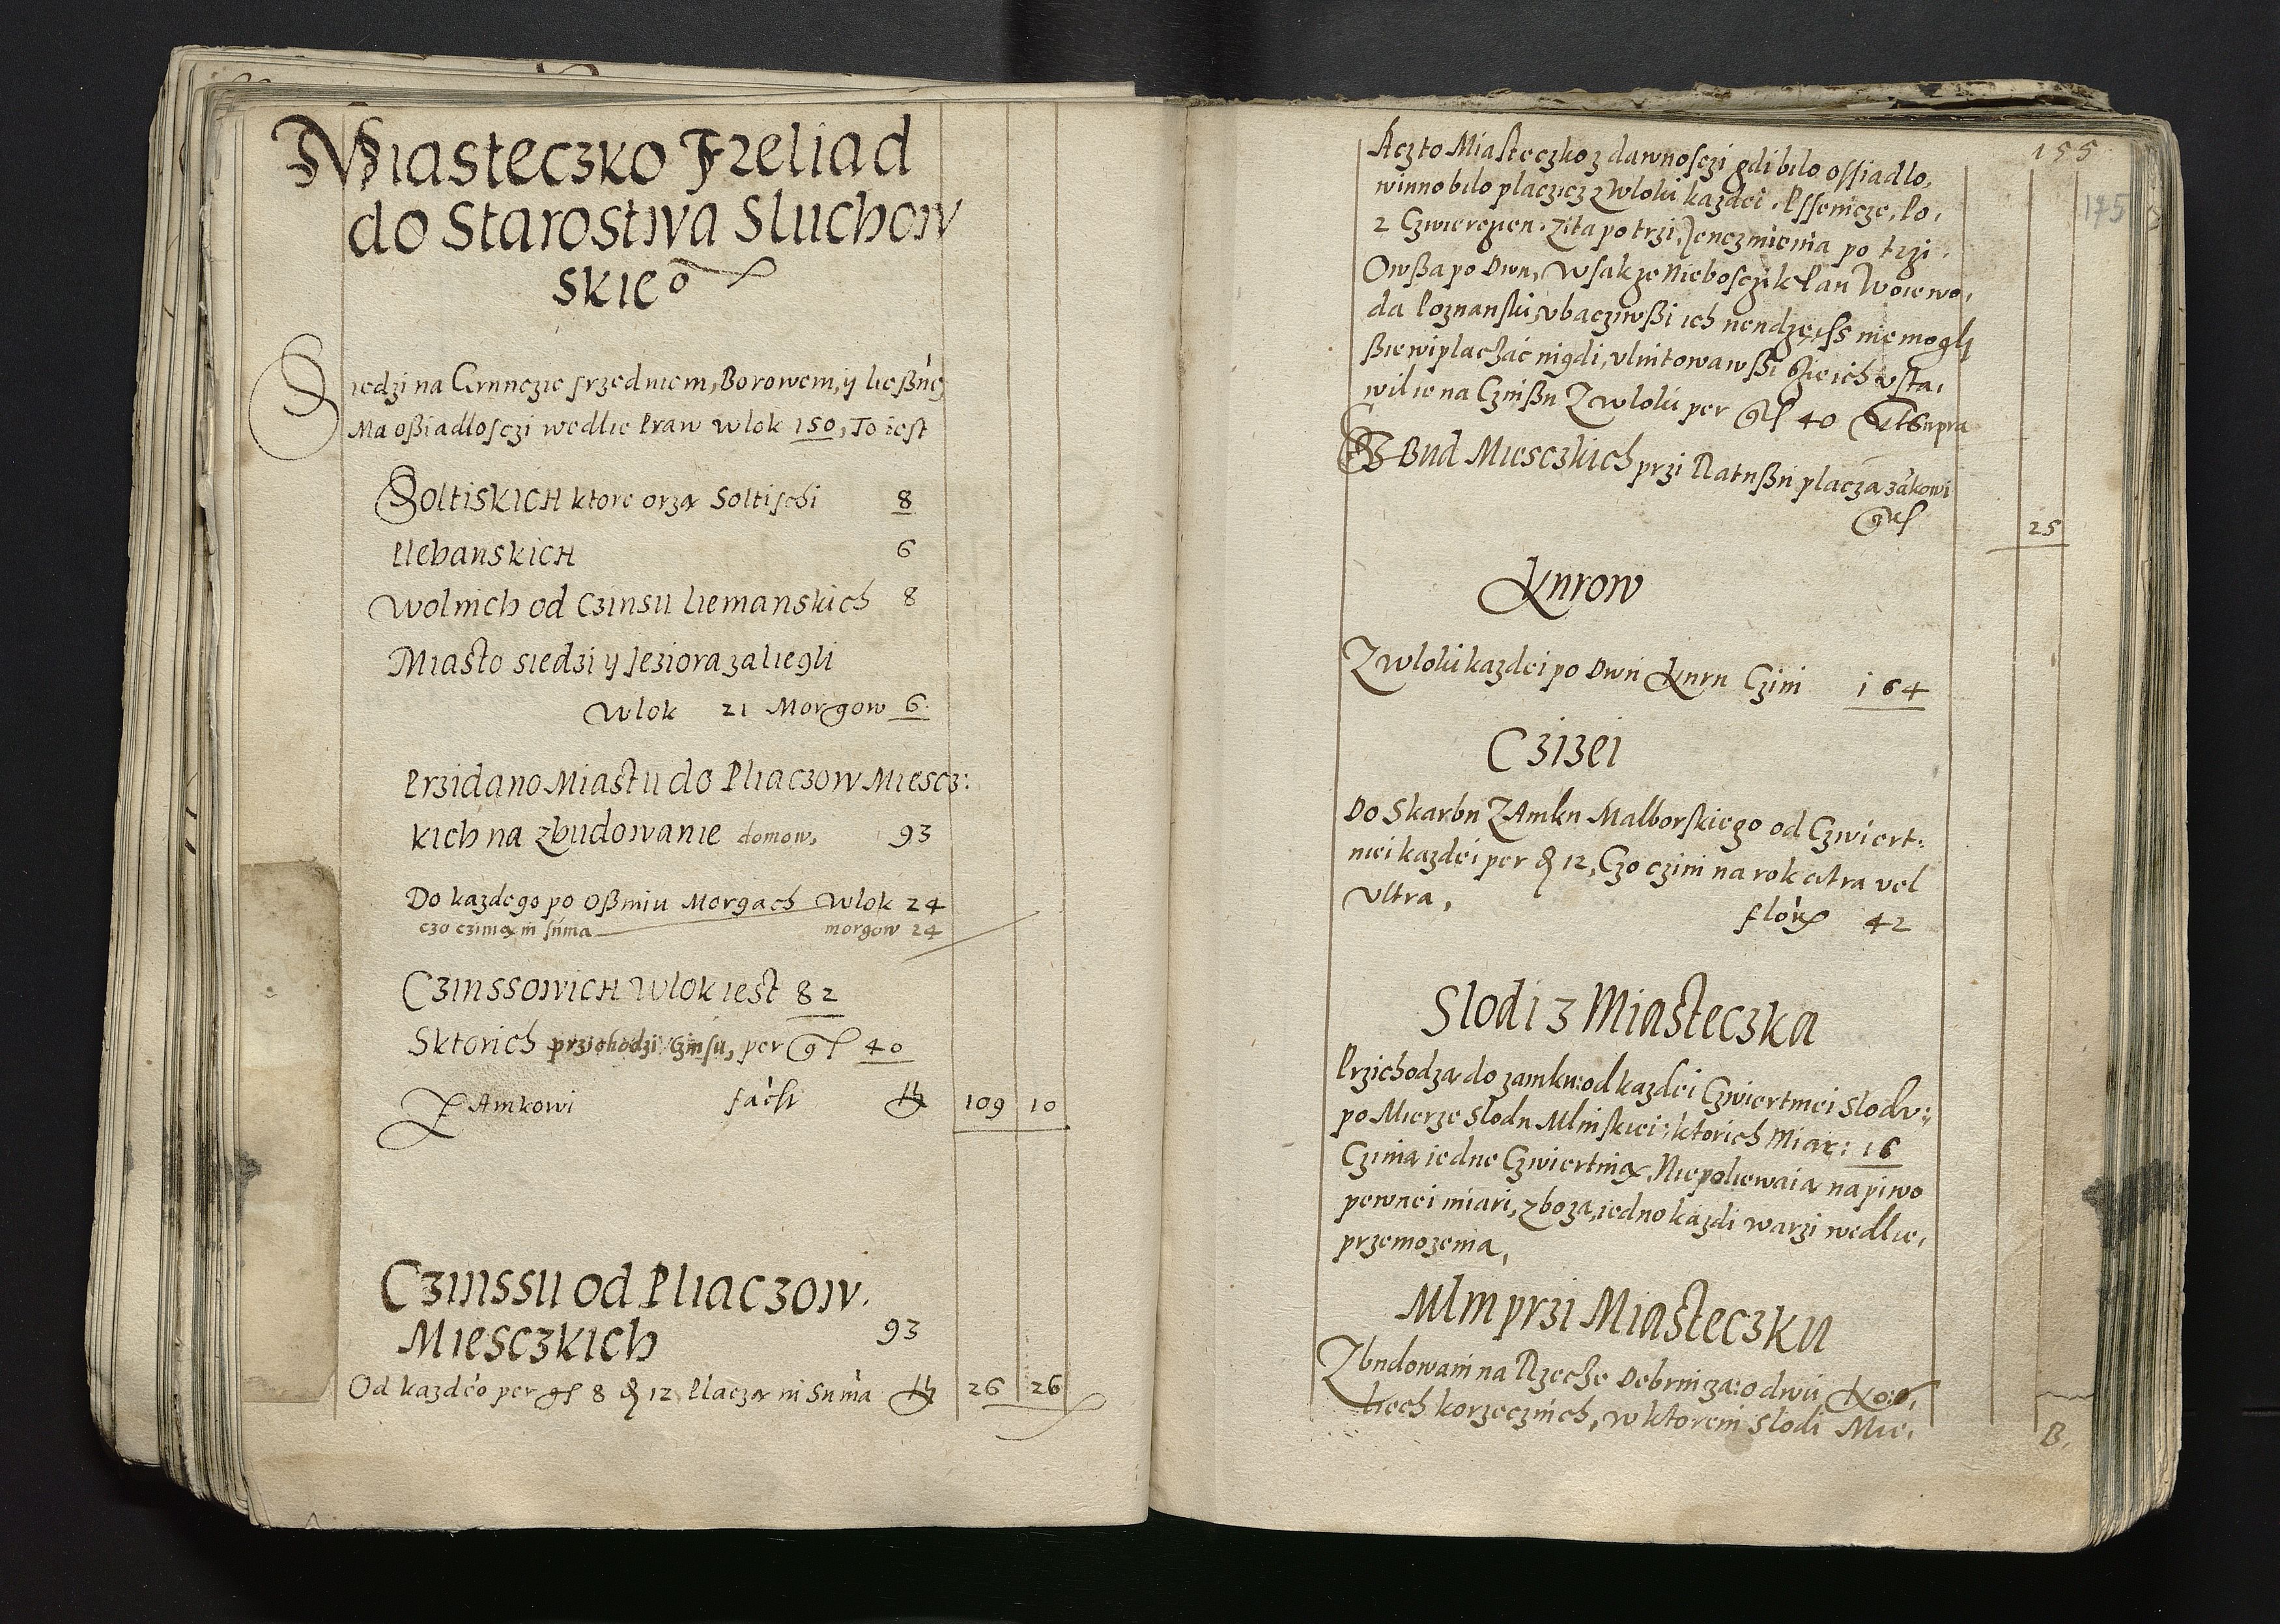 Miasteczko Freliad
do Starostwa Sluchow
skieo
Siedzi na Grunczie srzedniem, Borowem, y liessne
Ma ossiadlosczi wedlie Praw wlok 150, To iest
Soltiskich ktore orzą Soltischi 8
Plebanskich 6
Wolnich od Czinsu Liemanskich 8
Miasto siedzi y Jeziora zaliegli
Wlok 21 Morgow 6.
Przidano Miastu do Pliaczow Miescz:
kich na zbudowanie domow, 93
Do kazdego po Ossmiu Morgach Wlok 24
czo czinią in suma morgow 24
Czinssowich Wlok iest 82
Sktorich przichodzi Czinsu, per gl 40
Zamkowi facit 109 10
Czinssu od Pliaczow.
Miesczkich 93
Od kazdeo per gl 8 ꝗ 12 Placzą in Suma 26 26
155
175
Aczto Miasteczko z dawnosczi gdi bilo ossiadlo,
winno bilo placzicz z Wloki kazdei. Pssenicze, Po,
2 Czwiercien. Zita po trzi, Jenczmienia po trzi.
Owssa po Dwu, Wsakze Nieboszcik Pan Woiewo,
da Poznanski, vbacziwssi ich nendzę, iss nie mogli
ssie wiplaczać nigdi, vlutowawssi ssie ich vsta,
wil ie na Czinssu Z wloki per gl 40 Ut Supra
Z Bud Miesczkich przi Ratussu placzą zakowi
gl 25
Kurow
Z wloki kazdei po Dwu Kuru Czini 164
Czizei
Do Skarbu ZAmku Malborskiego od Czwiert:
niei kazdei per ꝗ 12, Czo czini na rok citra vel
Ultra, flor 42
Slodi z Miasteczka
Przichodzą do zamku: od kazdei Czwiertniei Slodu:
po Mierze Slodu Mlinskiei: ktorich Miar: 16
Czinia iedne Czwiertnią, Niepoliewaią na piwo
pewnei miari, zboza, iedno kazdi warzi wedlie,
przemozenia,
Mlin przi Miasteczku
Zbudowani na Rzecze Debrnicza: o dwu Ko:
liech korzecznich, w ktorem Slodi Mie,
B.